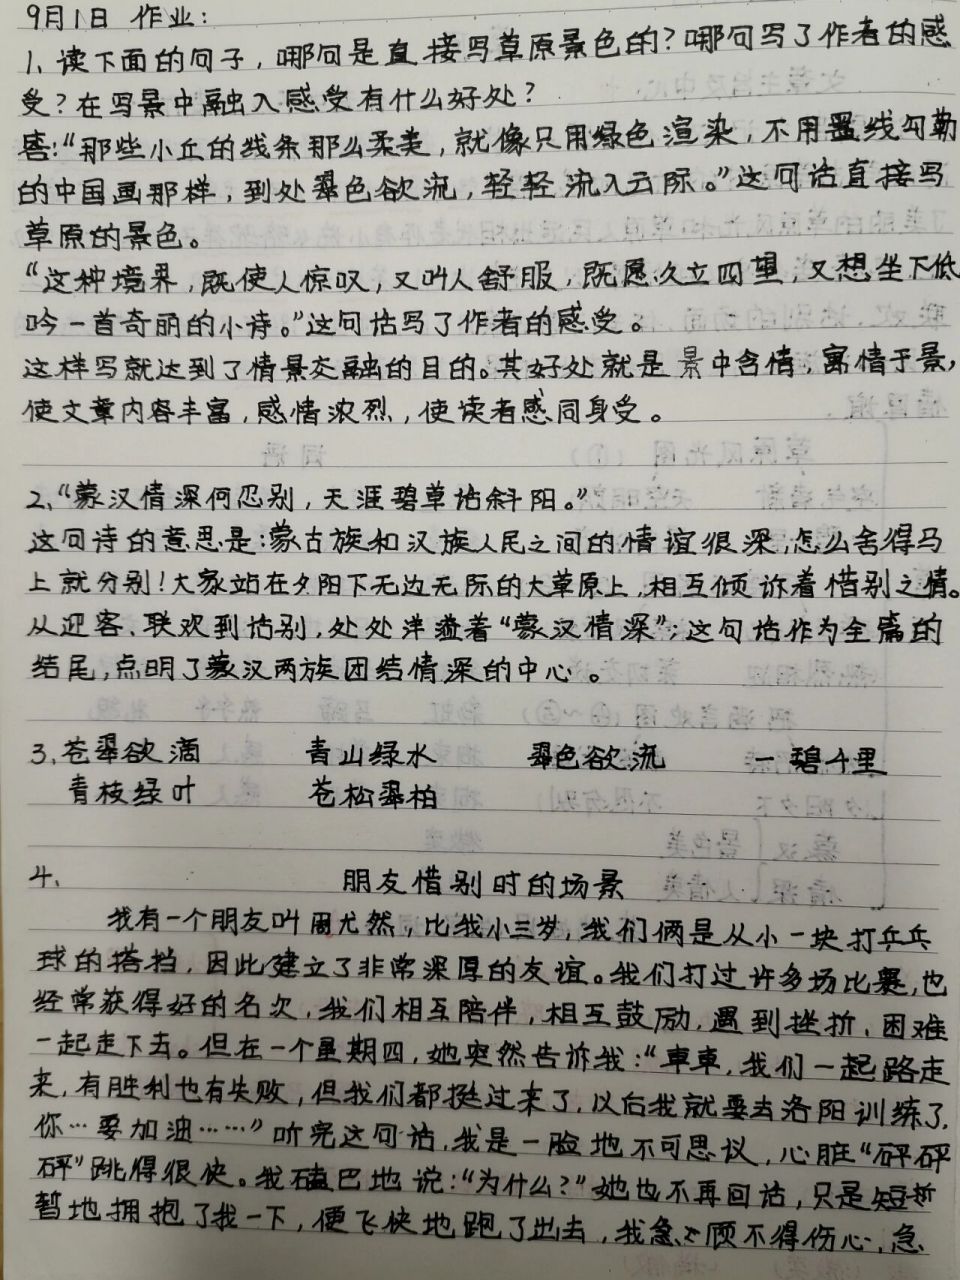 9月1日 作业:
1、读下面的句子,哪句是直接写草原景色的?哪句写了作者的感
受?在写景中融入感受有什么好处?
答:“那些小丘的线条那么柔美,就像只用绿色渲染,不用墨线勾勒
的中国画那样,到处翠色欲流,轻轻流入云际。”这句话直接写
草原的景色。
“这种境界,既使人惊叹,又叫人舒服,既愿久立四望,又想坐下低
吟一首奇丽的小诗。”这句话写了作者的感受。
这样写就达到了情景交融的目的。其好处就是景中含情,寓情于景,
使文章内容丰富,感情浓烈,使读者感同身受。
2、“蒙汉情深何忍别,天涯碧草话斜阳。”
这句诗的意思是:蒙古族和汉族人民之间的情谊很深,怎么舍得马
上就分别!大家站在夕阳下无边无际的大草原上,相互倾诉着惜别之情。
从迎客、联欢到话别,处处洋溢着“蒙汉情深”;这句话作为全篇的
结尾,点明了蒙汉两族团结情深的中心。
3、苍翠欲滴 青山绿水 翠色欲流 一碧千里
青枝绿叶 苍松翠柏
4、 朋友惜别时的场景
我有一个朋友叫周尤然,比我小三岁,我们俩是从小一块打乒乓
球的搭挡,因此建立了非常深厚的友谊。我们打过许多场比赛,也
经常获得好的名次,我们相互陪伴,相互鼓励,遇到挫折、困难
一起走下去。但在一个星期四,她突然告诉我:“車車,我们一起路走
来,有胜利也有失败,但我们都挺过来了,以后我就要去洛阳训练了,
你…要加油……”听完这句话,我是一脸地不可思议,心脏“砰砰
砰”跳得很快。我磕巴地说:“为什么?”她也不再回话,只是短折
暂地拥抱了我一下,便飞快地跑了出去,我急之顾不得伤心,急